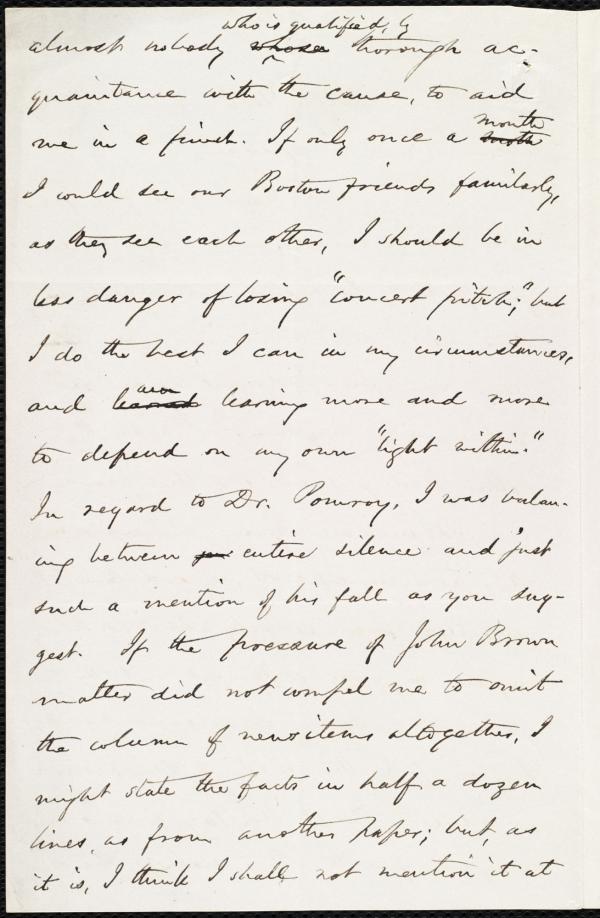 who is qualified, by
almost nobody whose thorough ac-
quaintance with the cause, to aid
me in a pinch. If only once a month
I could see our Boston friends familiarly,
as they see each other, I should be in
less danger of losing "concert pitch;" but
I do the best I can in my circumstances,
and am learning more and more
to depend on my own "light within."
In regard to Dr. Pomroy, I was balan-
ing between entire silence and just
such a mention of his fall as you sug-
gest. If the pressure of John Brown
matter did not compel me to omit
the column of news items altogether, I
might state the facts in half a dozen
lines, as from another paper; but, as
it is, I think I shall not mention it at